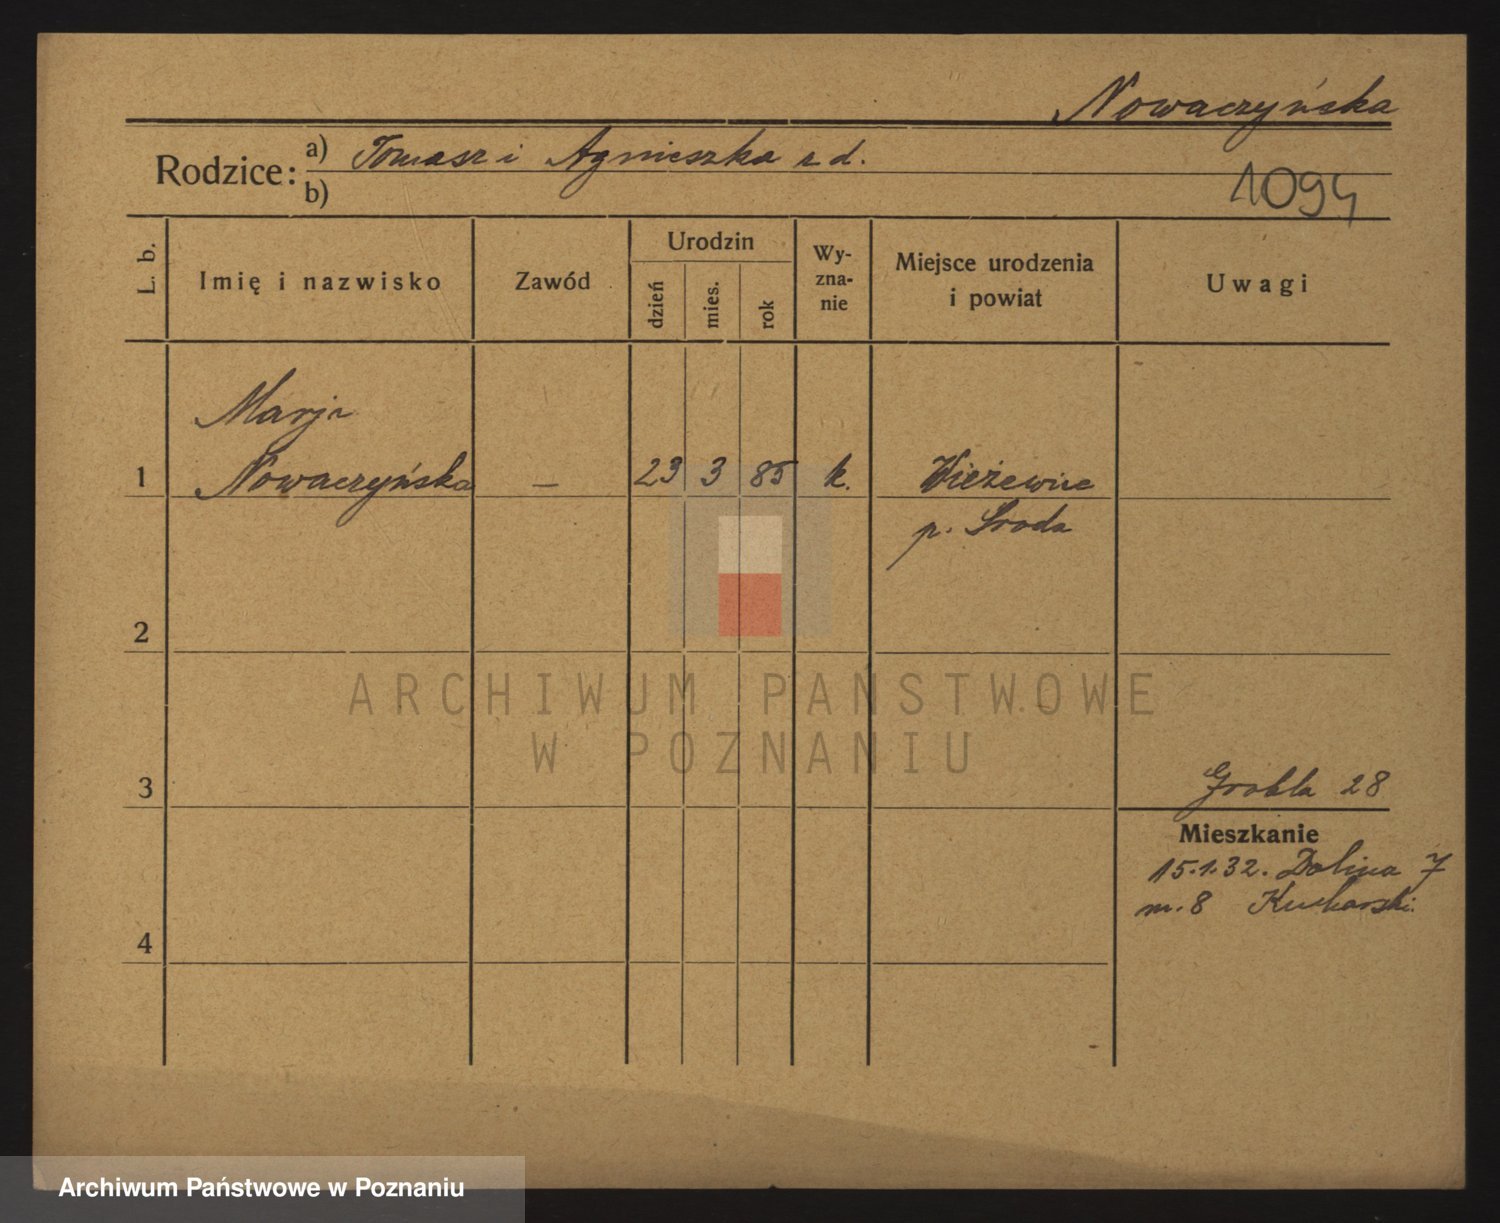 Nowaczyńska
Rodzice:
a) Tomasz i Agnieszka z d.
b)
1094
L. b.
Imię i nazwisko
Zawód
Urodzin
dzień
mies.
rok
Wy-
zna-
nie
Miejsce urodzenia
i powiat
Uwagi
Marja
1 Nowaczyńska — 23 3 85 k.
p. Sroda
2
ARCHIWUM PAŃSTWOWE
W POZNANIU
3
Grobla 28
Mieszkanie
15.1.32. Dolina 7
m. 8 Kucharski.
4
Archiwum Państwowe w Poznaniu